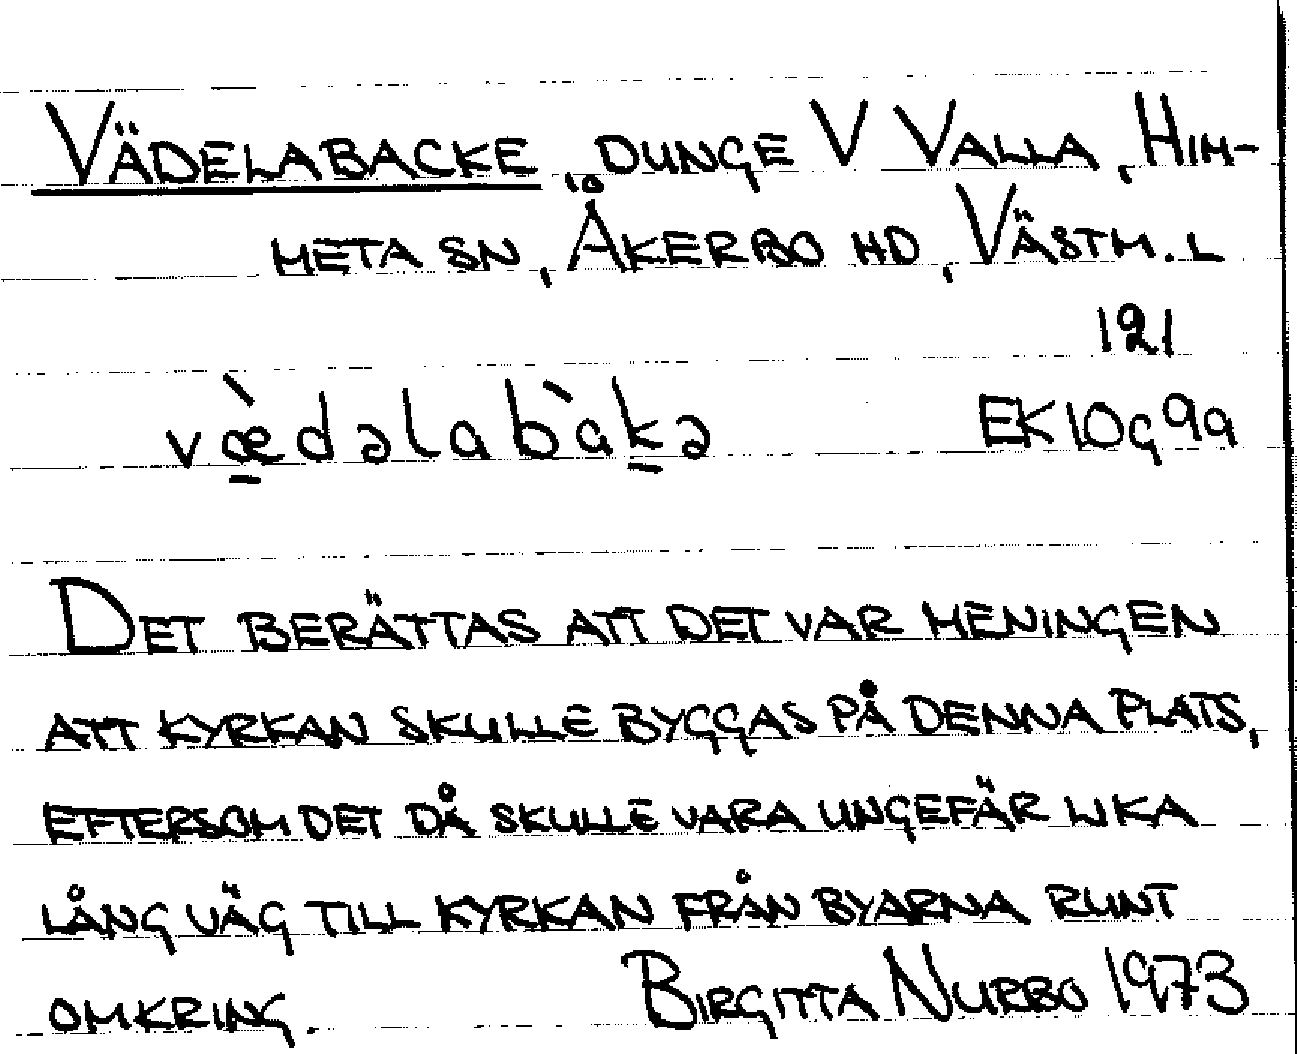 VÄDELABACKE, DUNGE V VALLA, HIM-
META SN, ÅKERBO HD, VÄSTM. L
121
væ̀dəlabàkə EK 10g9a
DET BERÄTTAS ATT DET VAR MENINGEN
ATT KYRKAN SKULLE BYGGAS PÅ DENNA PLATS,
EFTERSOM DET DÅ SKULLE VARA UNGEFÄR LIKA
LÅNG VÄG TILL KYRKAN FRÅN BYARNA RUNT
OMKRING. BIRGITTA NURBO 1973